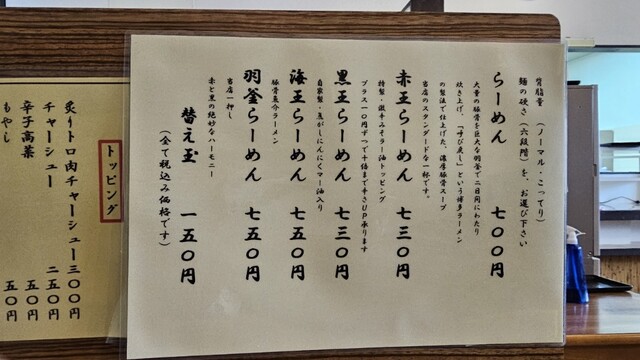 背脂量　（ノーマル・こってり）
麺の硬さ（六段階）を、お選び下さい
らーめん　七〇〇円
大量の豚骨を巨大な羽釜で二日間にわたり
炊き上げ、「呼び戻し」という博多ラーメン
の製法で仕上げた、濃厚豚骨スープ
当店のスタンダードな一杯です。
赤王らーめん　七三〇円
特製・激辛みそラー油トッピング
プラス一〇円ずつで十倍まで辛さUP承ります
黒王らーめん　七三〇円
自家製・焦がしにんにくマー油入り
海王らーめん　七五〇円
豚骨魚介ラーメン
羽釜らーめん　七五〇円
当店一押し
赤と黒の絶妙なハーモニー
替え玉　一五〇円
（全て税込み価格です）
トッピング
炙りトロ肉チャーシュー　三〇〇円
チャーシュー　二五〇円
辛子高菜　五〇円
もやし　五〇円